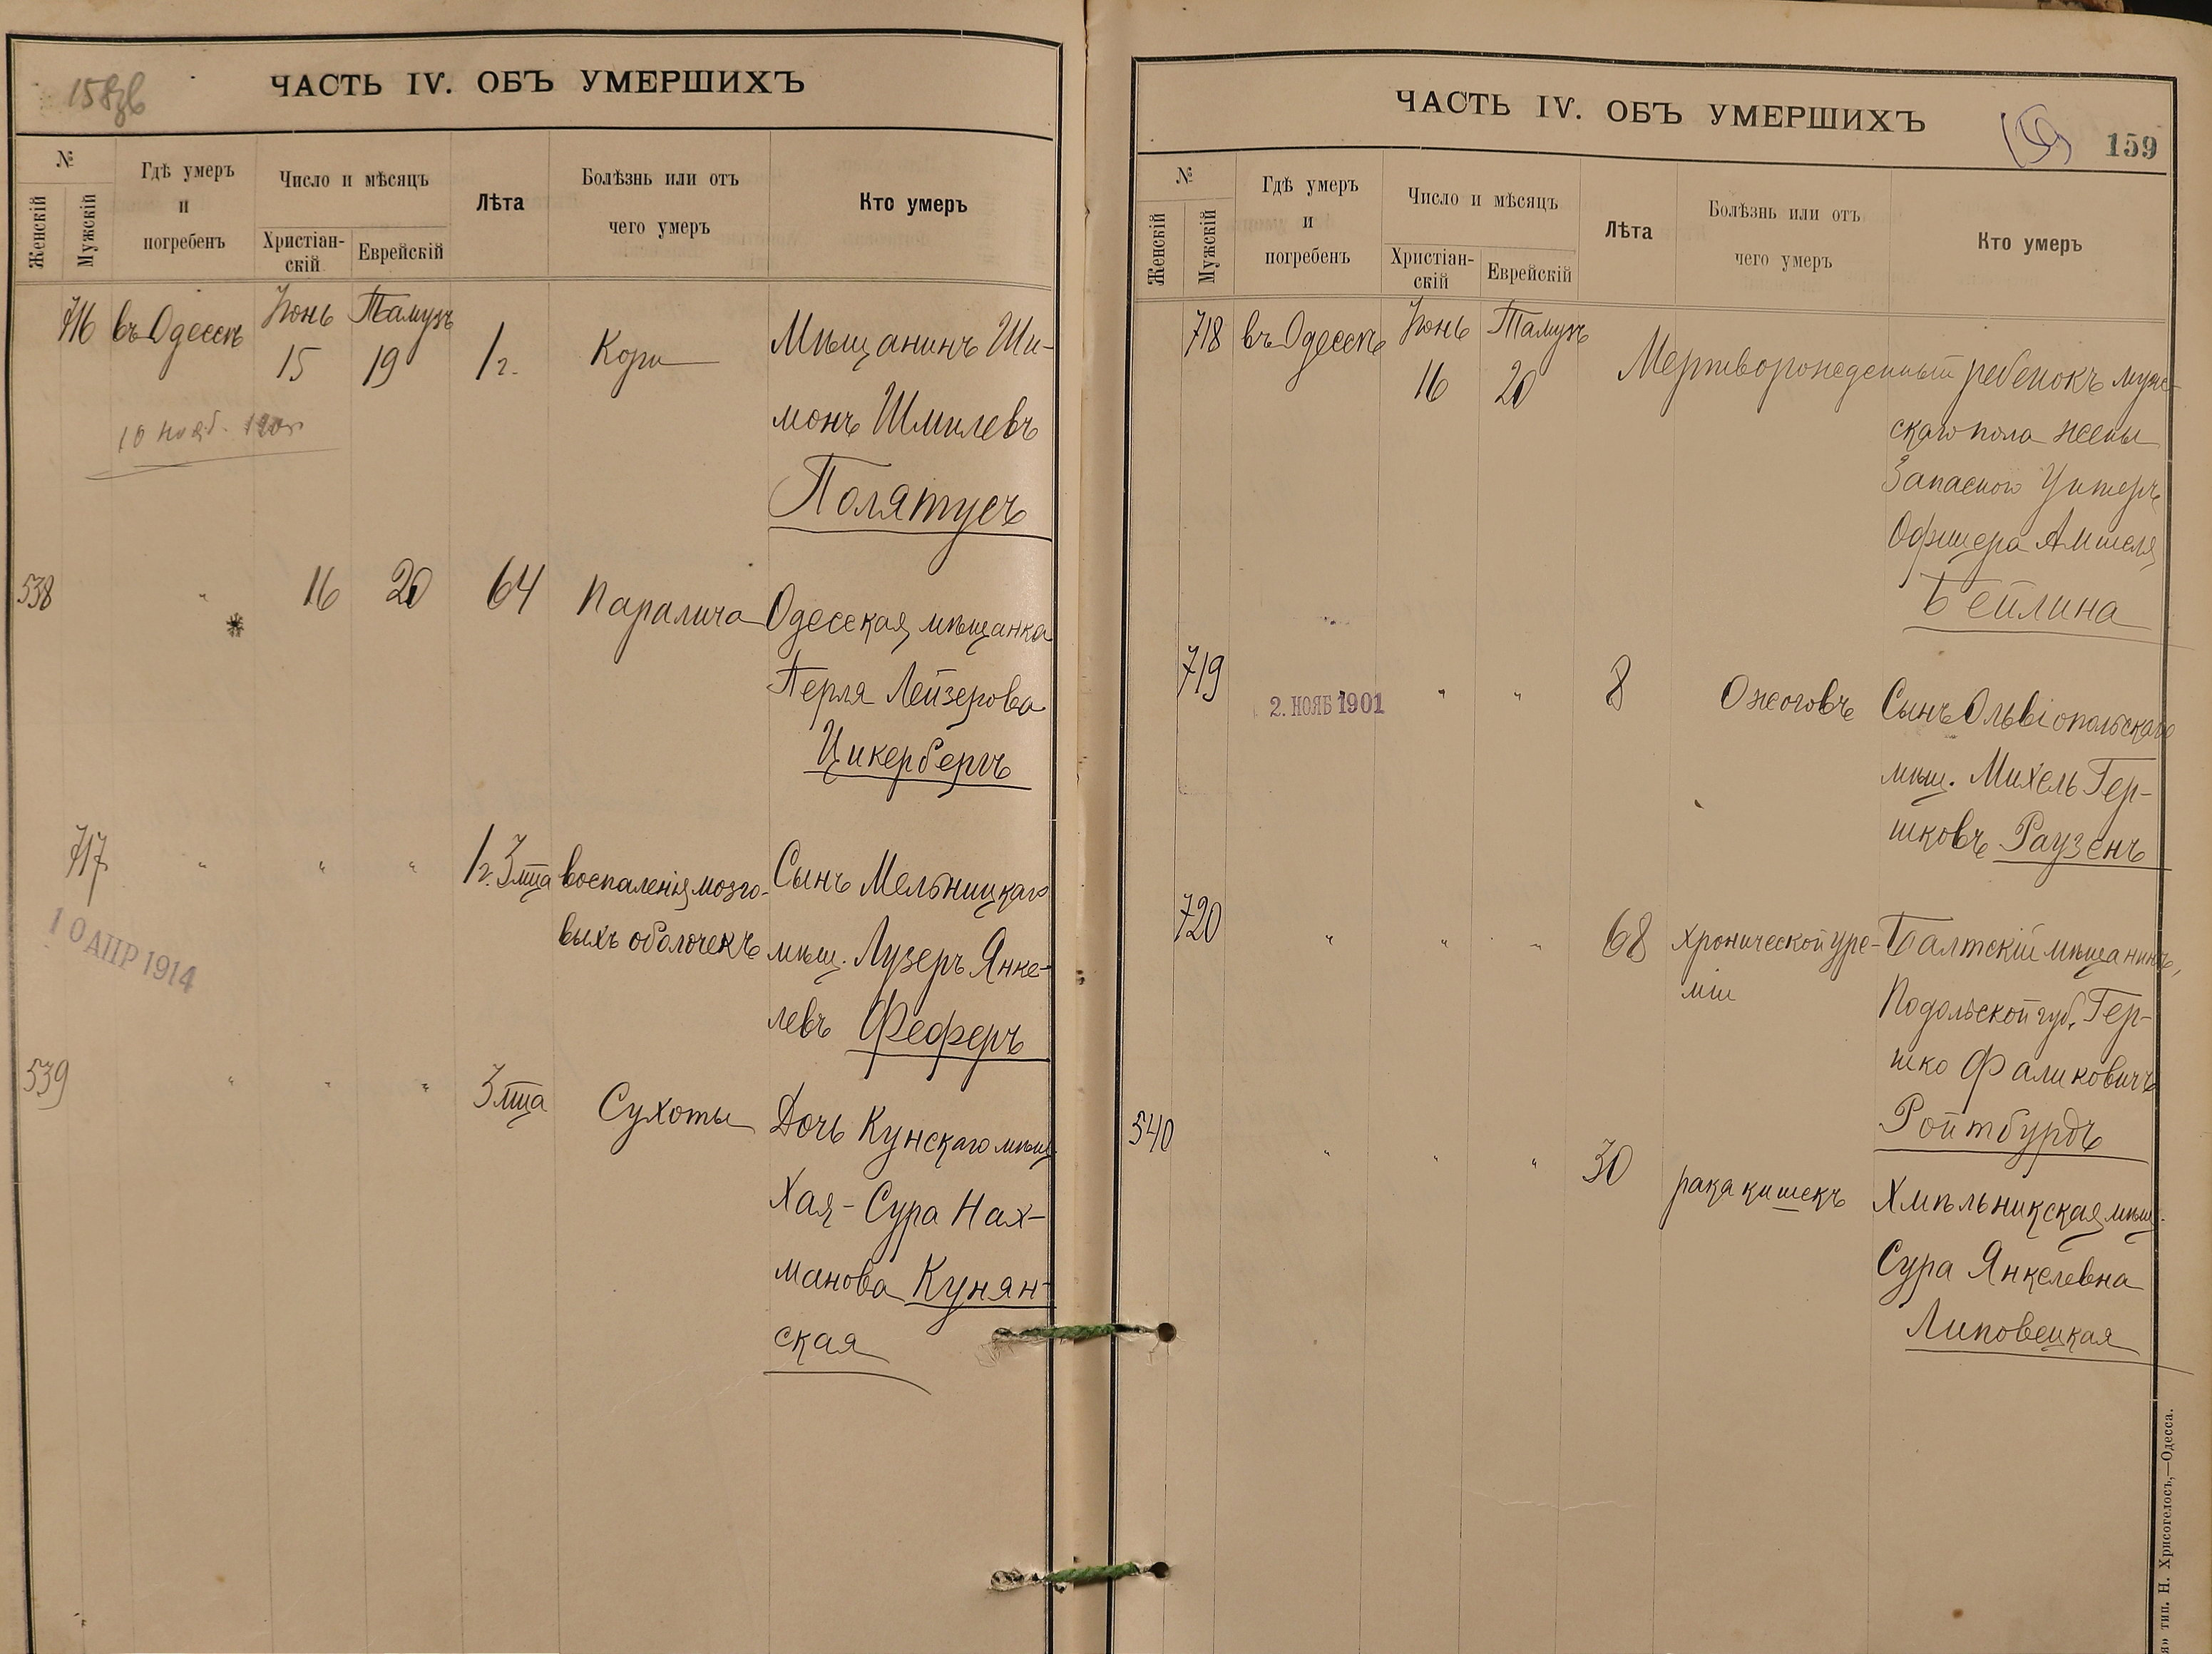 158об
ЧАСТЬ IV. ОБЪ УМЕРШИХЪ
№
Женскій
Мужскій
Гдѣ умеръ
и
погребенъ
Число и мѣсяцъ
Христіан-
скій
Еврейскій
Лѣта
Болѣзнь или отъ
чего умеръ
Кто умеръ
716 въ Одессѣ Іюнь 15 Тамузъ 19 1 г. Кори Мѣщанинъ Ши-
монъ Шмилевъ
Полятусъ
10 нояб.
538 " 16 20 64 Паралича Одесская мѣщанка
Перля Лейзерова
Цикербергъ
717 " " " 1 г. 3 мца воспаленія мозго- Сынъ Мельницкаго
выхъ оболочекъ мѣщ. Лузеръ Янке-
левъ Феферъ
10 АПР 1914
539 " " " 3 мца Сухоты Дочь Кунскаго мѣщ.
Хая-Сура Нах-
манова Кунян-
ская
ЧАСТЬ IV. ОБЪ УМЕРШИХЪ
159
159
№
Женскій
Мужскій
Гдѣ умеръ
и
погребенъ
Число и мѣсяцъ
Христіан-
скій
Еврейскій
Лѣта
Болѣзнь или отъ
чего умеръ
Кто умеръ
718 въ Одессѣ Іюнь 16 Тамузъ 20 Мертворожденный ребенокъ муж-
скаго пола жены
Запасного Унтеръ
Офицера Амшеля
Бейлина
719 " " " 8 Ожоговъ Сынъ Ольвіопольскаго
2. НОЯБ 1901
мѣщ. Михель Гер-
шковъ Раузенъ
720 " " " 68 хронической уре- Балтскій мѣщанинъ,
міи Подольской губ. Гер-
шко Фаликовичъ
Ройтбурдъ
540 " " " 30 рака кишекъ Хмѣльникская мѣщ.
Сура Янкелевна
Липовецкая
я» тип. Н. Хрисогелосъ,—Одесса.